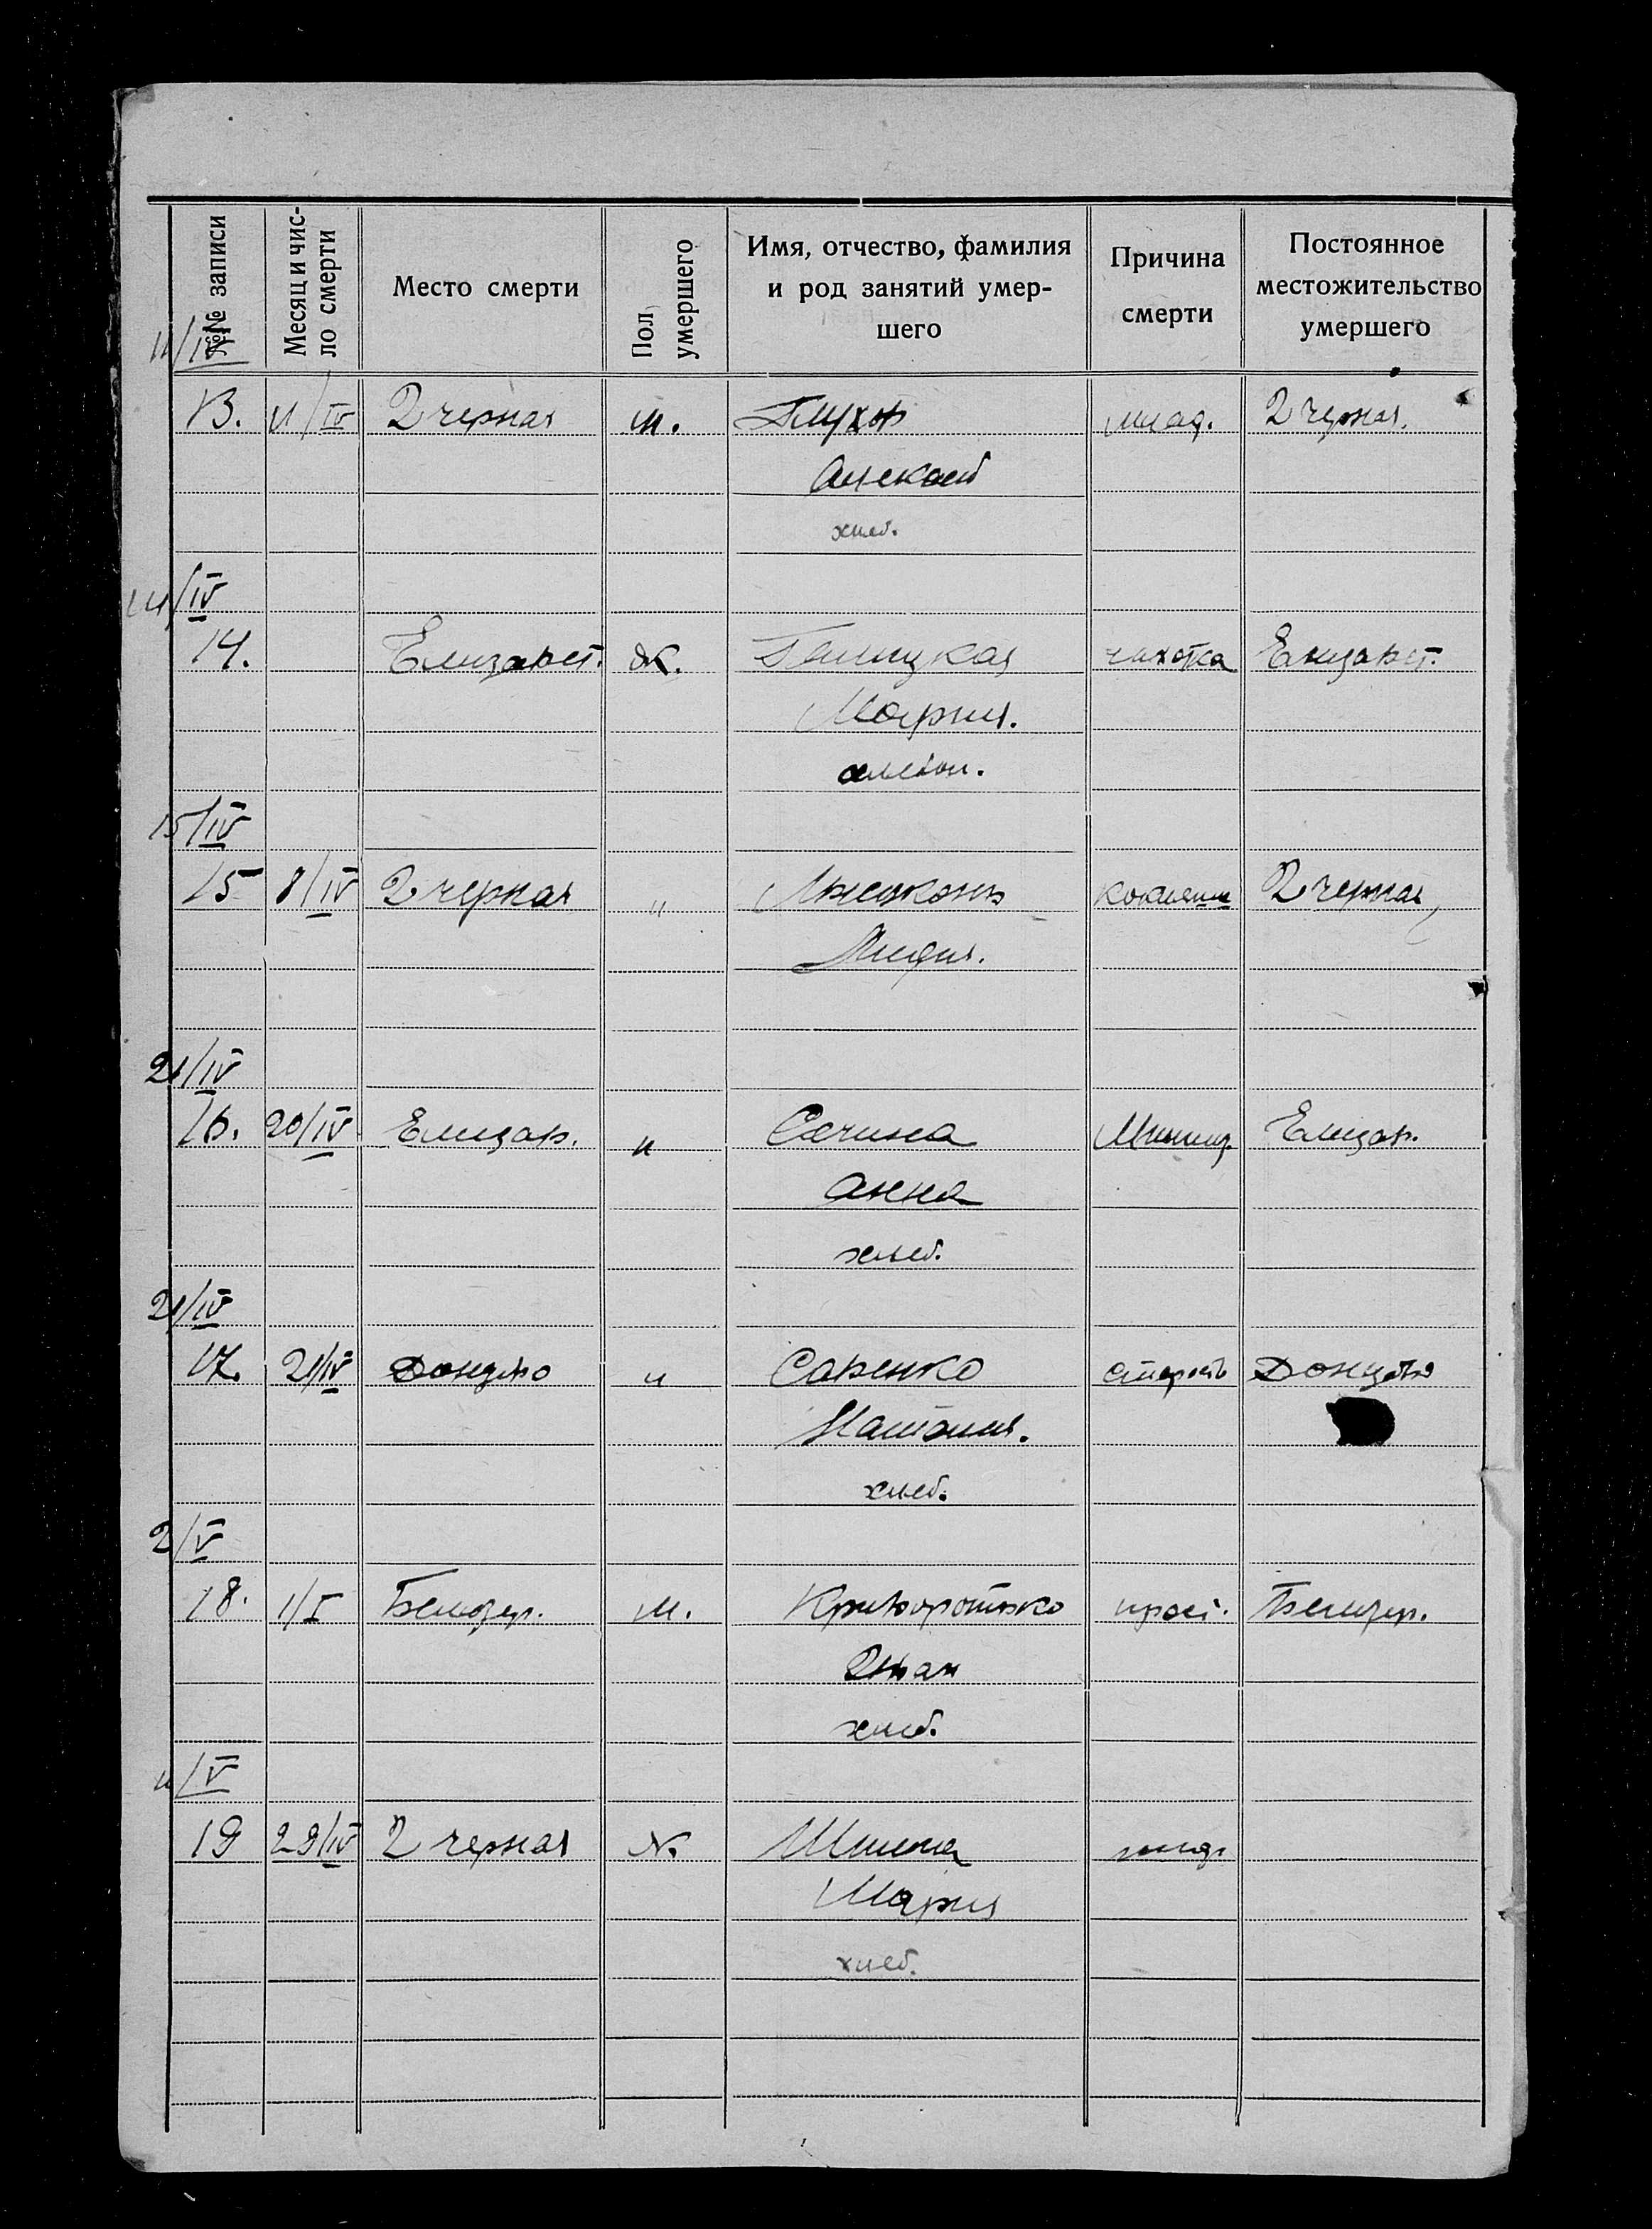 №№ записи
Месяц и чис-
ло смерти
Место смерти
Пол
умершего
Имя, отчество, фамилия
и род занятий умер-
шего
Причина
смерти
Постоянное
местожительство
умершего
11/IV
13. 11/IV 2 черная м. Глухов млад. 2 черная.
Алексей
хлеб.
14/IV
14. Елизавет. ж. Галицкая чахотка Елизавет.
Мария.
хлебоп.
15/IV
15 8/IV 2 черная " 2 черная
Лидия.
21/IV
16. 20/IV Елизав. " Сечина Елизав.
Анна
хлеб.
21/IV
17. 21/IV Донцово " Савенко старость Донцово
Наталия.
хлеб.
2/V
18. 1/V Белозер. м. Криворотько Белозер.
Иван
хлеб.
/V
19 29/IV 2 черная ж. Шилина млад.
Мария
хлеб.